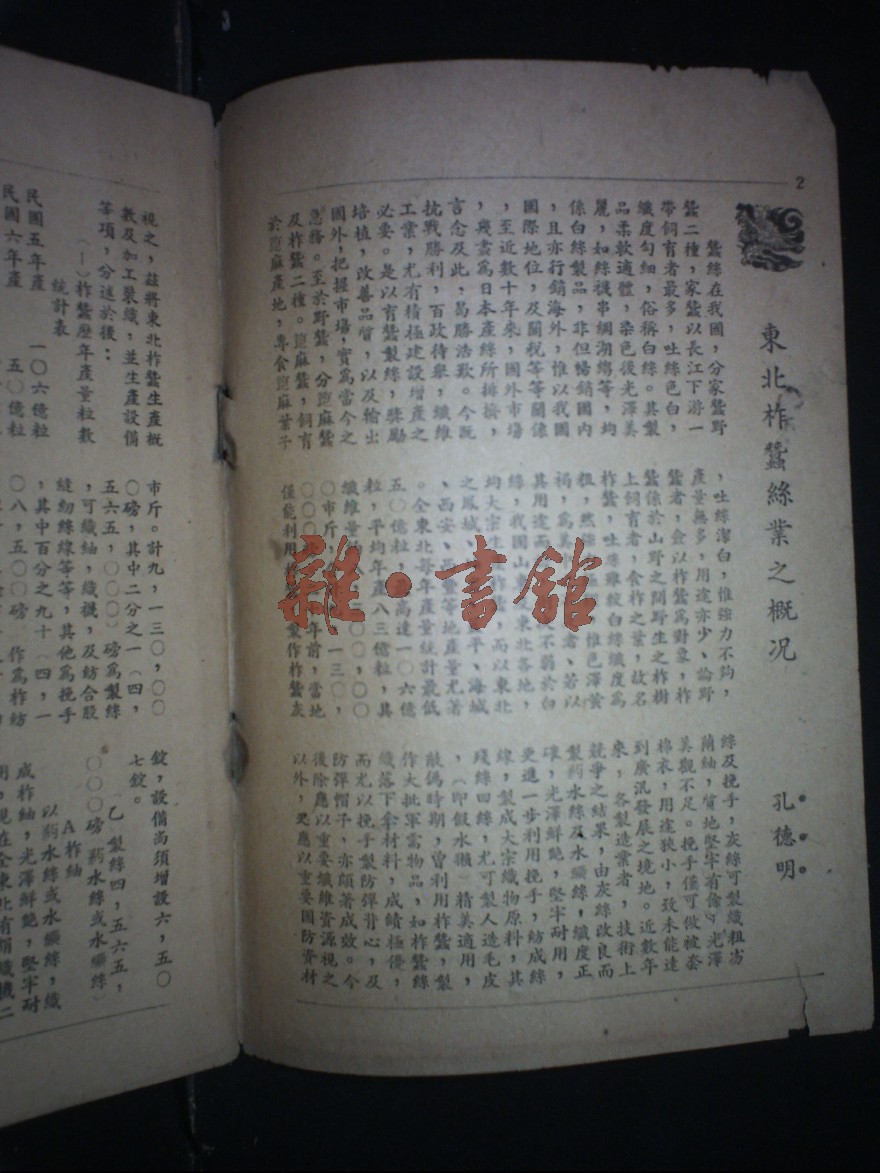 2
東北柞蠶絲業之概況
孔德明
蠶絲在我國，分家蠶野
蠶二種，家蠶以長江下游一
帶飼育者最多，吐絲色白，
纖度勻細，俗稱白絲。其製
品柔軟適體，染色後光澤美
麗，如絲襪串綢湖縐等，均
係白絲製品，非但暢銷國內
，且亦行銷海外，惟以我國
國際地位，及關稅等等關係
，至近數十年來，國外市場
，幾盡為日本產絲所排擠，
言念及此，曷勝浩歎。今既
抗戰勝利，百政待舉，纖維
工業，尤有積極建設增產之
必要。是以育蠶製絲，獎勵
培植，改善品質，以及輸出
國外，把握市場，實為當今之
急務。至於野蠶，分萞麻蠶
及柞蠶二種。萞麻蠶，飼育
於萞麻產地，專食萞麻葉子
，吐絲潔白，惟強力不夠，
產量無多，用途亦少、論野
蠶者，僉以柞蠶為對象，柞
蠶係於山野之間野生之柞樹
上飼育者，食柞之葉，故名
柞蠶，吐絲雖較白絲纖度為
粗，然 惟色澤黃
褐，為美中 者、若以
其用途而 不弱於白
絲，我國山 東北各地，
均大宗生 而以東北
之鳳城、 平、海城
、西安、西豐等地產量尤著
。全東北每年產量統計最低
五〇億粒 高達一〇六億
粒，平均年產八三億粒，其
纖維量約 〇〇，〇〇
〇市斤， 一三〇，
〇〇〇 年前，當地
僅能利用 製作柞蠶灰
絲及挽手，灰絲可製織粗嵜
蘭紬，質地堅牢有餘，光澤
美觀不足。挽手僅可做被套
棉衣，用途狹小，致未能達
到廣汎發展之境地。近數年
來，各製造業者，技術上
競爭之結果，由灰絲改良而
製葯水絲及水纊絲，纖度正
確，光澤鮮艷，堅牢耐用，
更進一步利用挽手，紡成絲
線，製成大宗織物原料，其
殘絲回絲，尤可製人造毛皮
，（即假水獺）精美適用，
敵偽時期，曾利用柞蠶，製
作大批軍需物品，如柞蠶絲
織落下傘材料，成績極優，
而尤以挽手製防彈背心，及
防彈帽子，亦頗著成效。今
後除應以重要纖維資源視之
以外，更應以重要國防資材
視之，茲將東北柞蠶生產概
數及加工製織，並生產設備
等項，分述於後：
（一）柞蠶歷年產量粒數
統計表
民國五年產　一〇六億粒
民國六年產　五〇億粒
市斤。計九，一三〇，〇〇
〇磅，其中二分之一（四，
五六五，〇〇〇）磅為製絲
，可織紬，織襪，及紡合股
縫紉絲線等等，其他為挽手
，其中百分之九十（四，一
〇八，五〇〇磅）作為柞紡
錠，設備尚須增設六，五〇
七錠。
（乙）製絲四，五六五，
〇〇〇磅（葯水絲或水纊絲）
A柞紬
以葯水絲或水纊絲，織
成柞紬，光澤鮮艷，堅牢耐
用，現在全東北有絹織機二
雜·書館